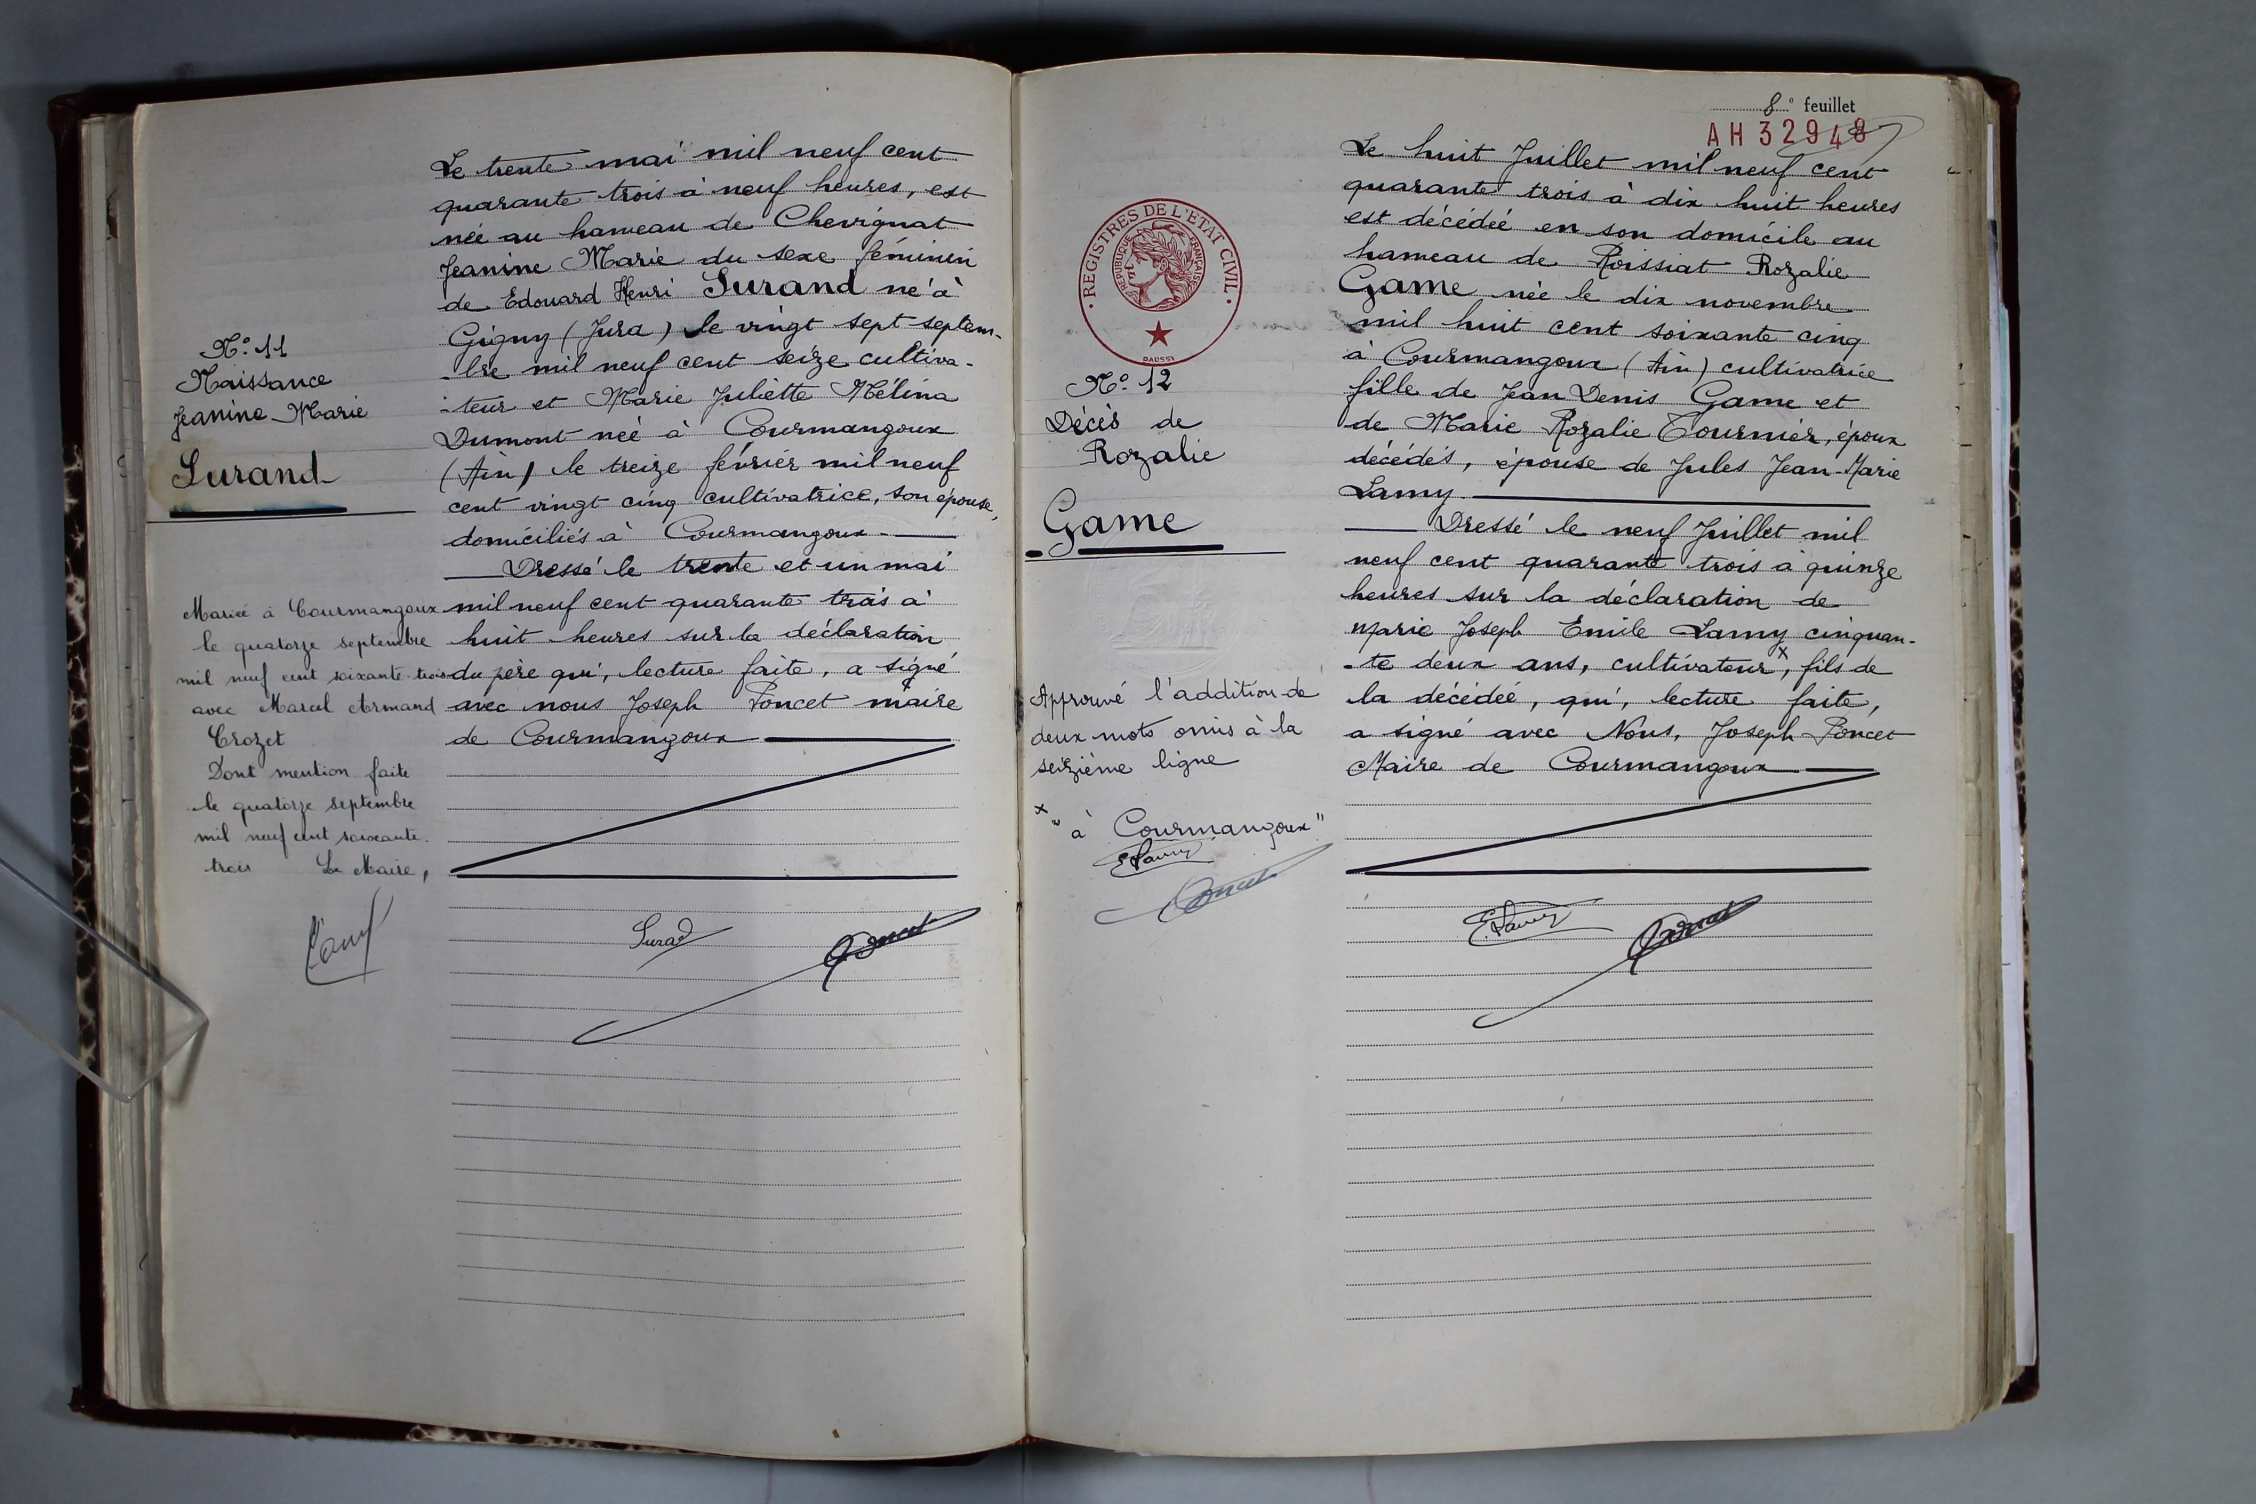 N° 11
Naissance
Jeanine Marie
Surand
Mariée à Courmangoux
le quatorze septembre
mil neuf cent soixante-trois
avec Marcel Armand
Crozet
Dont mention faite
le quatorze septembre
mil neuf cent soixante-
trois Le Maire,
Le trente mai mil neuf cent
quarante trois à neuf heures, est
née au hameau de Chevignat
Jeanine Marie du sexe féminin
de Edouard Henri Surand né à
Gigny (Jura) le vingt sept septem-
-bre mil neuf cent seize cultiva-
-teur et Marie Juliette Mélina
Dumont née à Courmangoux
(Ain) le treize février mil neuf
cent vingt cinq cultivatrice, son épouse,
domiciliés à Courmangoux.
Dressé le trente et un mai
mil neuf cent quarante trois à
huit heures sur la déclaration
du père qui, lecture faite, a signé
avec nous Joseph Poncet maire
de Courmangoux
Surand
Poncet
8e feuillet
AH 32948
REGISTRES DE L'ÉTAT CIVIL
RÉPUBLIQUE FRANÇAISE
DAUSSY
N° 12
Décès de
Rozalie
Game
Approuvé l'addition de
deux mots omis à la
seizième ligne
x "à Courmangoux"
E Lamy
Poncet
Le huit Juillet mil neuf cent
quarante trois à dix huit heures
est décédée en son domicile au
hameau de Roissiat Rozalie
Game née le dix novembre
mil huit cent soixante cinq
à Courmangoux (Ain) cultivatrice
fille de Jean Denis Game et
de Marie Rozalie Tournier, époux
décédés, épouse de Jules Jean-Marie
Lamy
Dressé le neuf Juillet mil
neuf cent quarante trois à quinze
heures sur la déclaration de
Marie Joseph Emile Lamy cinquan-
-te deux ans, cultivateur x, fils de
la décédée, qui, lecture faite,
a signé avec Nous, Joseph Poncet
Maire de Courmangoux
E. Lamy
Poncet